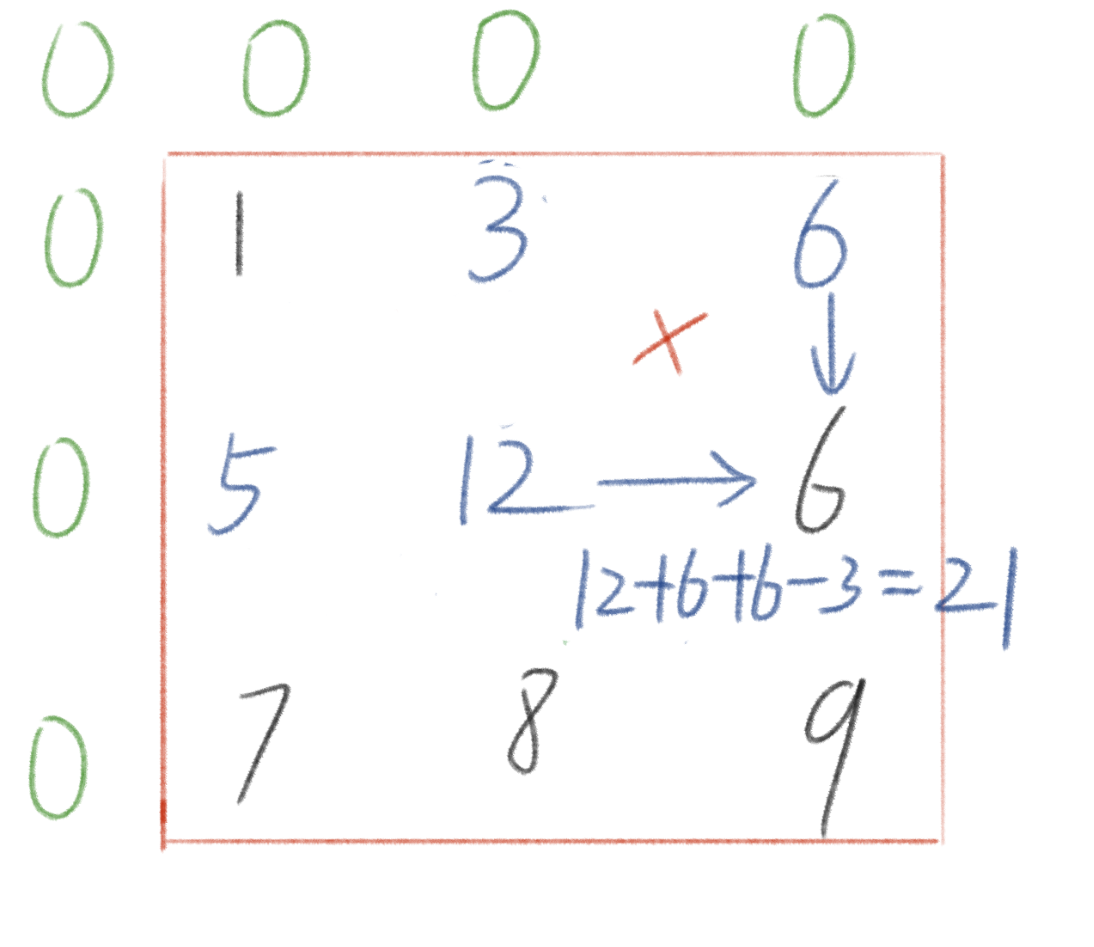 0 0 0 0
0 1 3 6
0 5 12 → 6
12+6+6-3=21
0 7 8 9